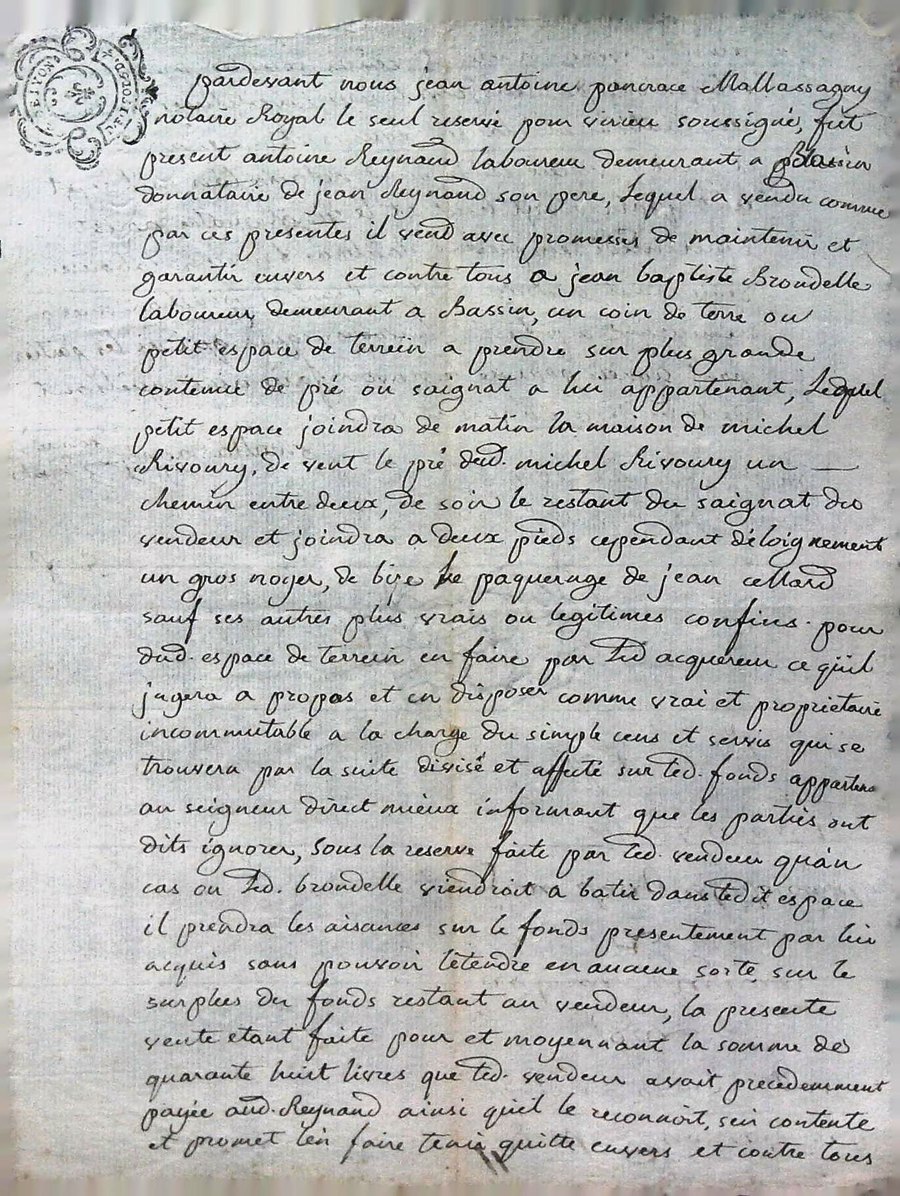 pardevant nous jean antoine pancrace Mallassagny
notaire Royal le seul reservé pour virieu soussigné, fut
present antoine Reynaud laboureur demeurant a
donnataire de jean Reynaud son pere, Lequel a vendu comme
par ces presentes il vend avec promesses de maintenir et
garantir envers et contre tous a jean baptiste Brondelle
laboureur demeurant a Bassin, un coin de terre ou
petit espace de terrein a prendre sur plus grande
contenue de pré ou saignat a lui appartenant, Lequel
petit espace joindra de matin la maison de michel
Rivoury, de vent le pré dud. michel Rivoury un
chemin entre deux, de soir le restant du saignat du
vendeur et joindra a deux pieds cependant déloignement
un gros noyer, de bize le paquerage de jean cellard
sauf ses autres plus vrais ou legitimes confins. pour
dud. espace de terrein en faire par led acquereur ce qu'il
jugera a propos et en disposer comme vrai et proprietaire
incommutable a la charge du simple cens et servis qui se
trouvera par la suite divisé et affecté sur led. fonds
au seigneur direct mieux informant que les parties ont
dits ignorer, sous la reserve faite par led. vendeur qu'au
cas ou led. brondelle viendroit a batir dans ledit espace
il prendra les aisances sur le fonds presentement par lui
acquis sans pouvoir l'etendre en aucune sorte sur le
surplus du fonds restant au vendeur, la presente
vente etant faite pour et moyennant la somme de
quarante huit livres que led. vendeur avait precedemment
payée aud. Reynaud ainsi qu'il le reconnoit, s'en contente
et promet l'en faire tenir quitte envers et contre tous